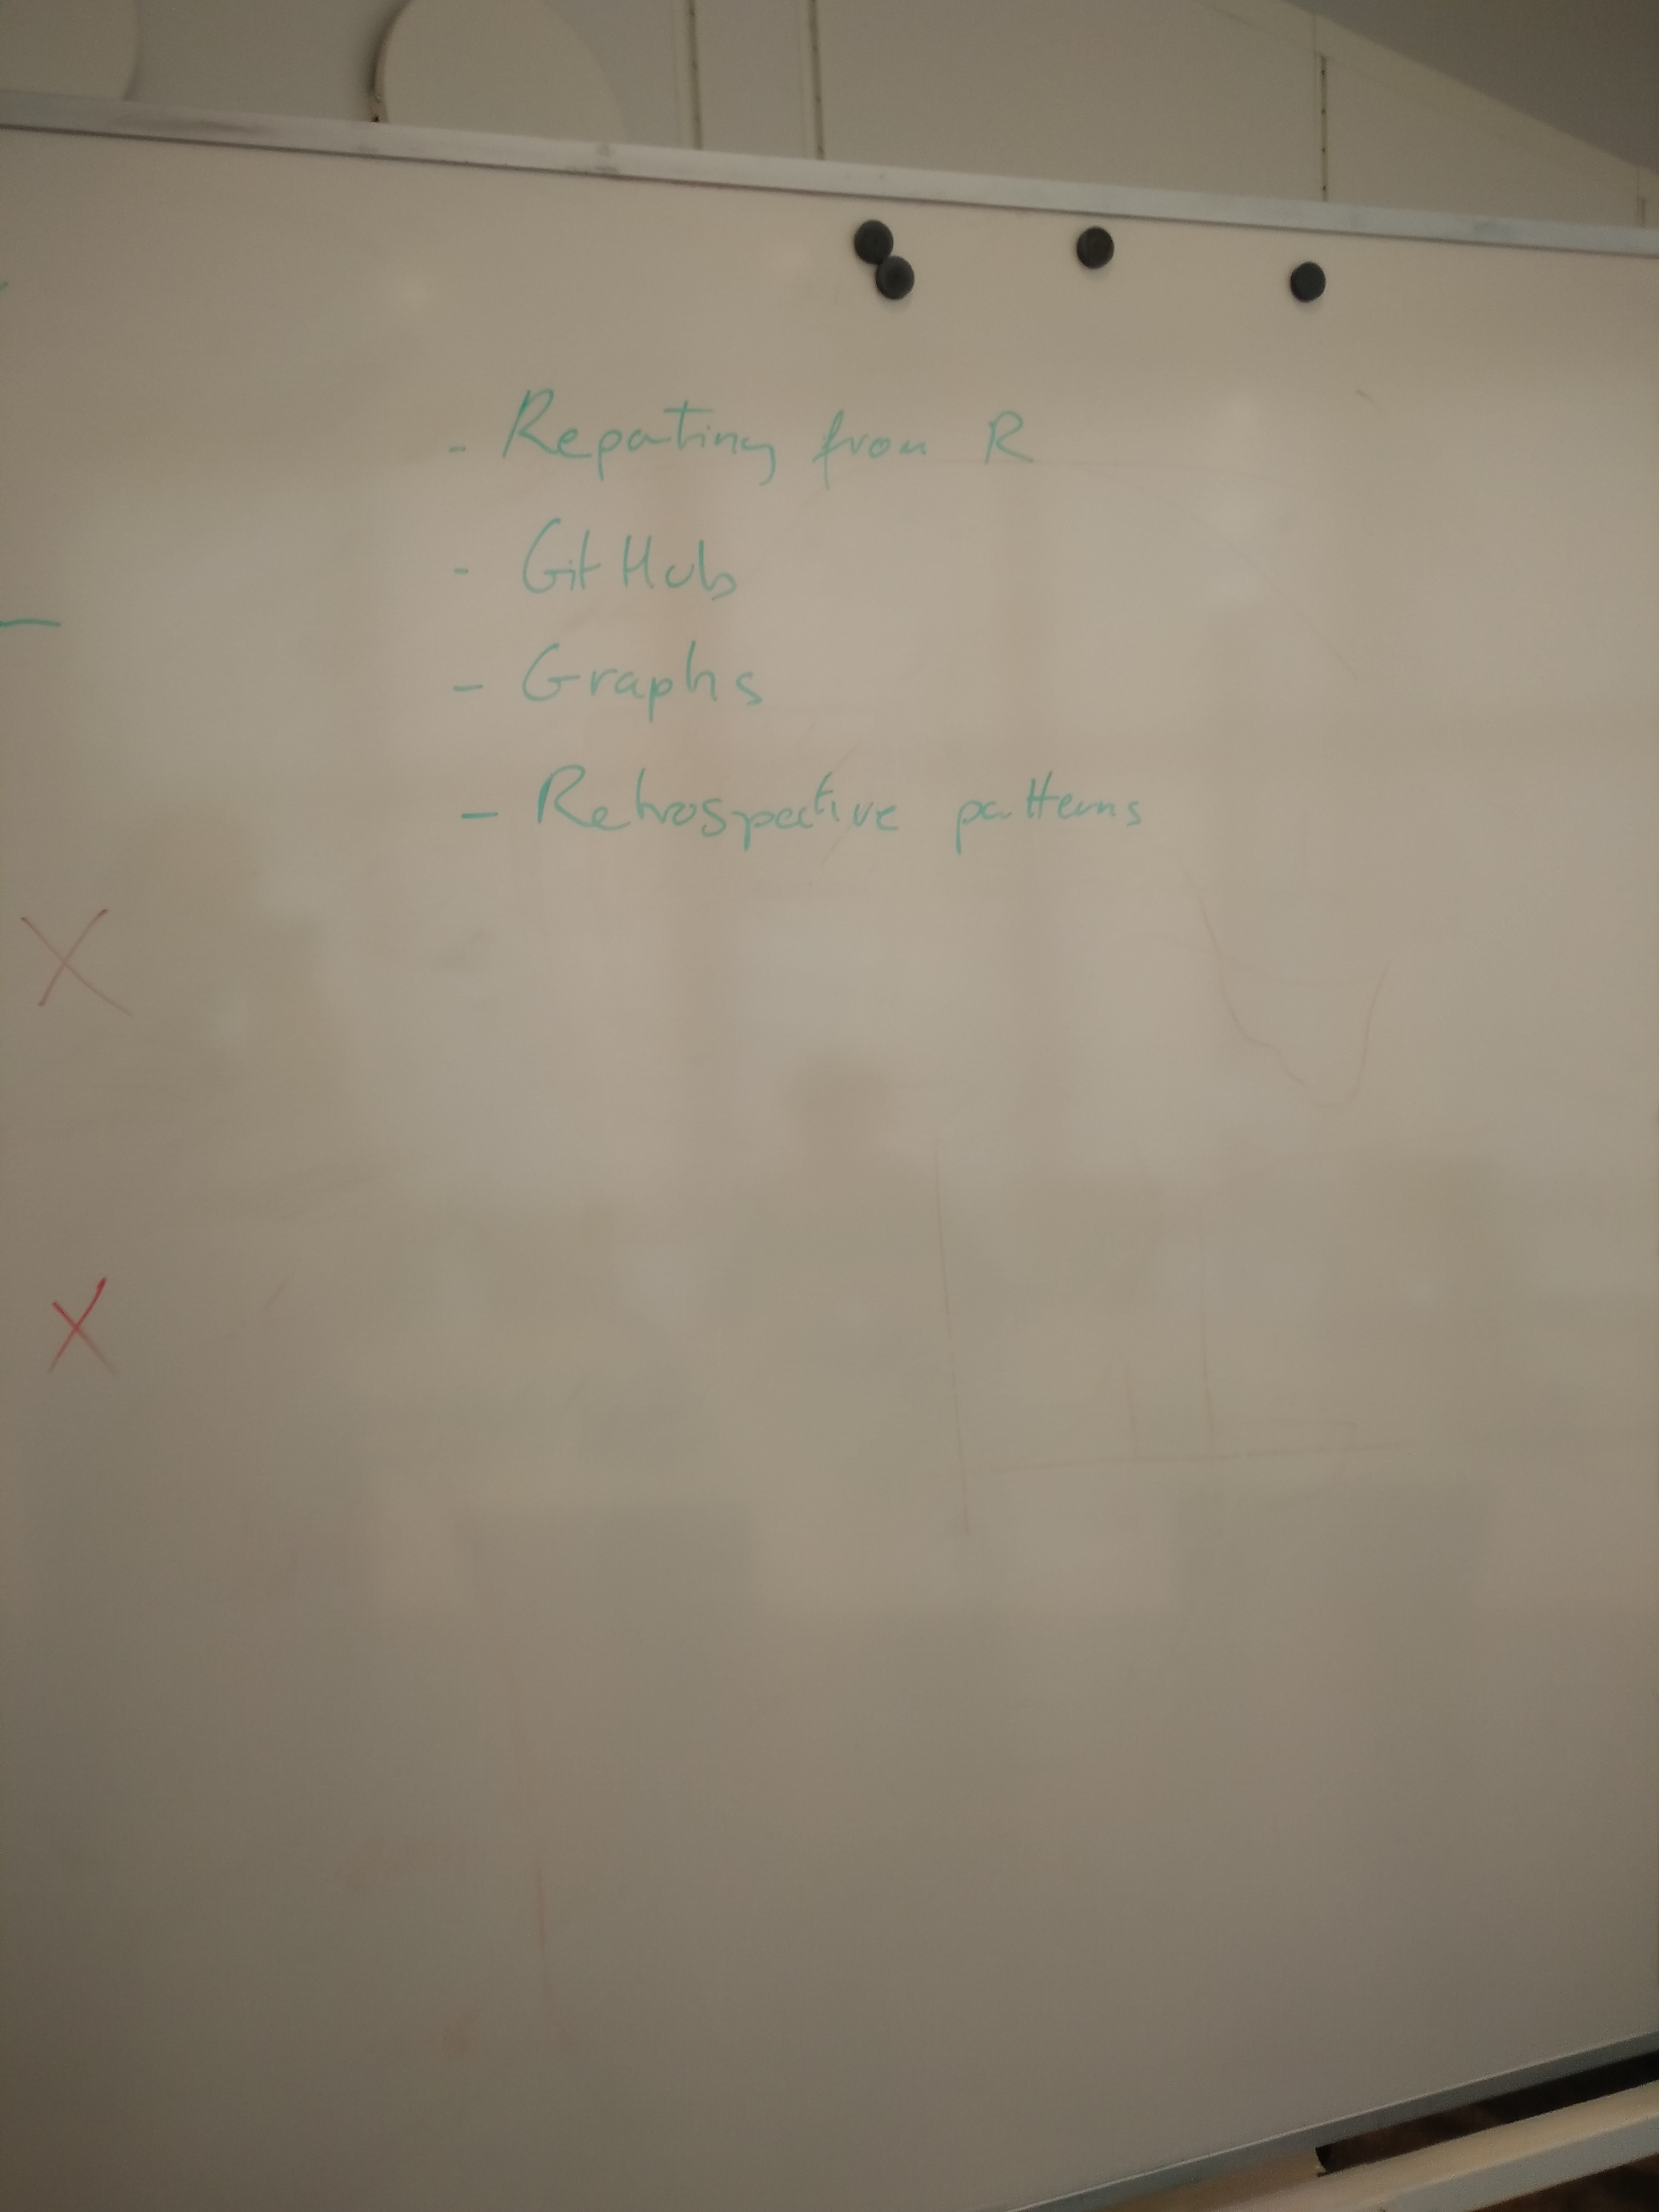 - Reporting from R
- GitHub
- Graphs
- Retrospective patterns
X
X